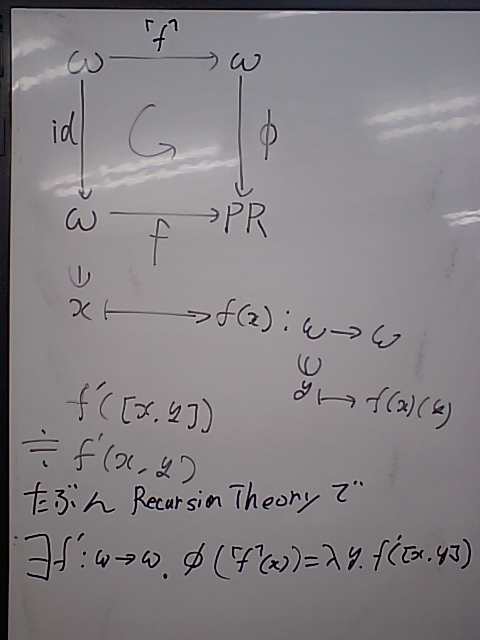 「f」
ω → ω
id ϕ
ω → PR
f
x ↦ f(x) : ω → ω
y ↦ f(x)(y)
f'([x,y])
≒ f'(x,y)
たぶん Recursion Theory で
∃f':ω→ω. ϕ(「f」(x))=λy.f'([x,y])